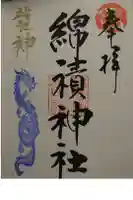 奉拝
綿積神社
龍神